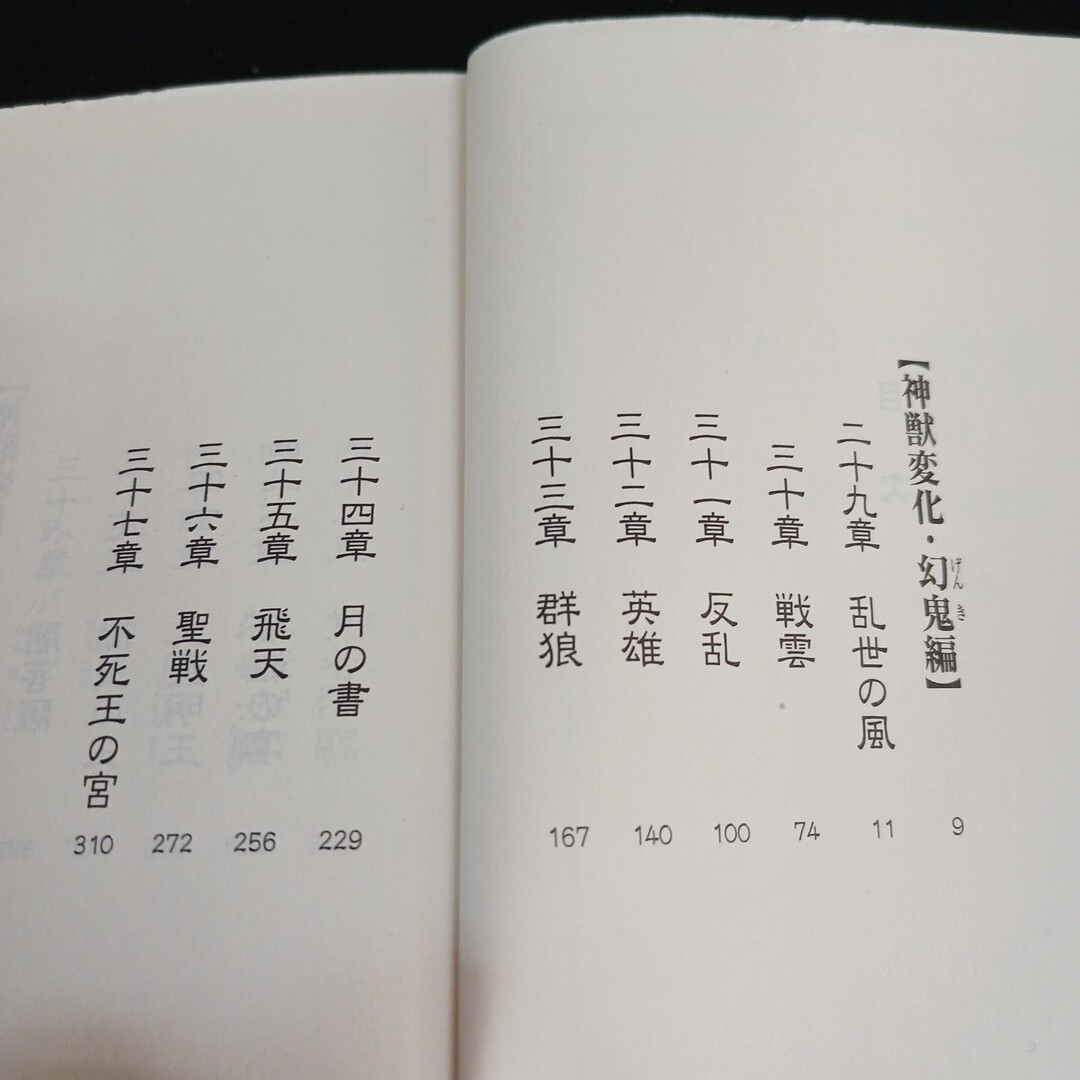 【神獣変化・幻鬼編】 9
げんき
二十九章 乱世の風 11
三十章 戦雲 74
三十一章 反乱 100
三十二章 英雄 140
三十三章 群狼 167
三十四章 月の書 229
三十五章 飛天 256
三十六章 聖戦 272
三十七章 不死王の宮 310